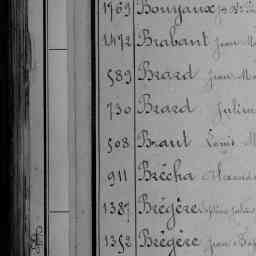 1769 Bouyaux
1472 Brabant Jean M
589 Brard Jean M
730 Brard Julien
508 Braut Louis M
911 Brécha Alexandre
1387 Brégère
1352 Brégère Jean Bap